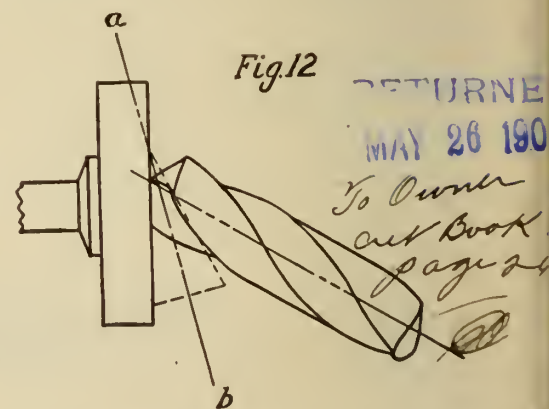 a
Fig. 12
RETURNE
MAY 26 190
To Owner
Book
page 24
b